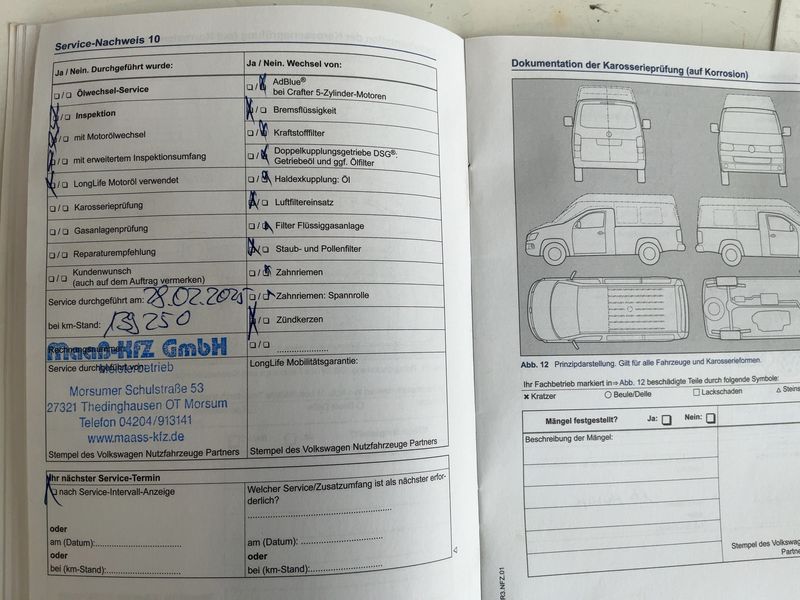 Service-Nachweis 10
Ja / Nein. Durchgeführt wurde:
Ölwechsel-Service
Inspektion
mit Motorölwechsel
mit erweitertem Inspektionsumfang
LongLife Motoröl verwendet
Karosserieprüfung
Gasanlagenprüfung
Reparaturempfehlung
Kundenwunsch
(auch auf dem Auftrag vermerken)
Service durchgeführt am: 28.02.2025
bei km-Stand: 139250
Rechnungsnummer:
Maaß-Kfz GmbH
Meisterbetrieb
Service durchgeführt von:
Morsumer Schulstraße 53
27321 Thedinghausen OT Morsum
Telefon 04204/913141
www.maass-kfz.de
Stempel des Volkswagen Nutzfahrzeuge Partners
Ja / Nein. Wechsel von:
AdBlue®
bei Crafter 5-Zylinder-Motoren
Bremsflüssigkeit
Kraftstofffilter
Doppelkupplungsgetriebe DSG®:
Getriebeöl und ggf. Ölfilter
Haldexkupplung: Öl
Luftfiltereinsatz
Filter Flüssiggasanlage
Staub- und Pollenfilter
Zahnriemen
Zahnriemen: Spannrolle
Zündkerzen
LongLife Mobilitätsgarantie:
Stempel des Volkswagen Nutzfahrzeuge Partners
Ihr nächster Service-Termin
nach Service-Intervall-Anzeige
oder
am (Datum):
oder
bei (km-Stand):
Welcher Service/Zusatzumfang ist als nächster erfor-
derlich?
am (Datum):
oder
bei (km-Stand):
Dokumentation der Karosserieprüfung (auf Korrosion)
Abb. 12 Prinzipdarstellung. Gilt für alle Fahrzeuge und Karosserieformen.
Ihr Fachbetrieb markiert in ⇒ Abb. 12 beschädigte Teile durch folgende Symbole:
× Kratzer ○ Beule/Delle □ Lackschaden △ Steins
Mängel festgestellt? Ja: Nein:
Beschreibung der Mängel:
Stempel des Volksw
Partn
R3.NFZ.01